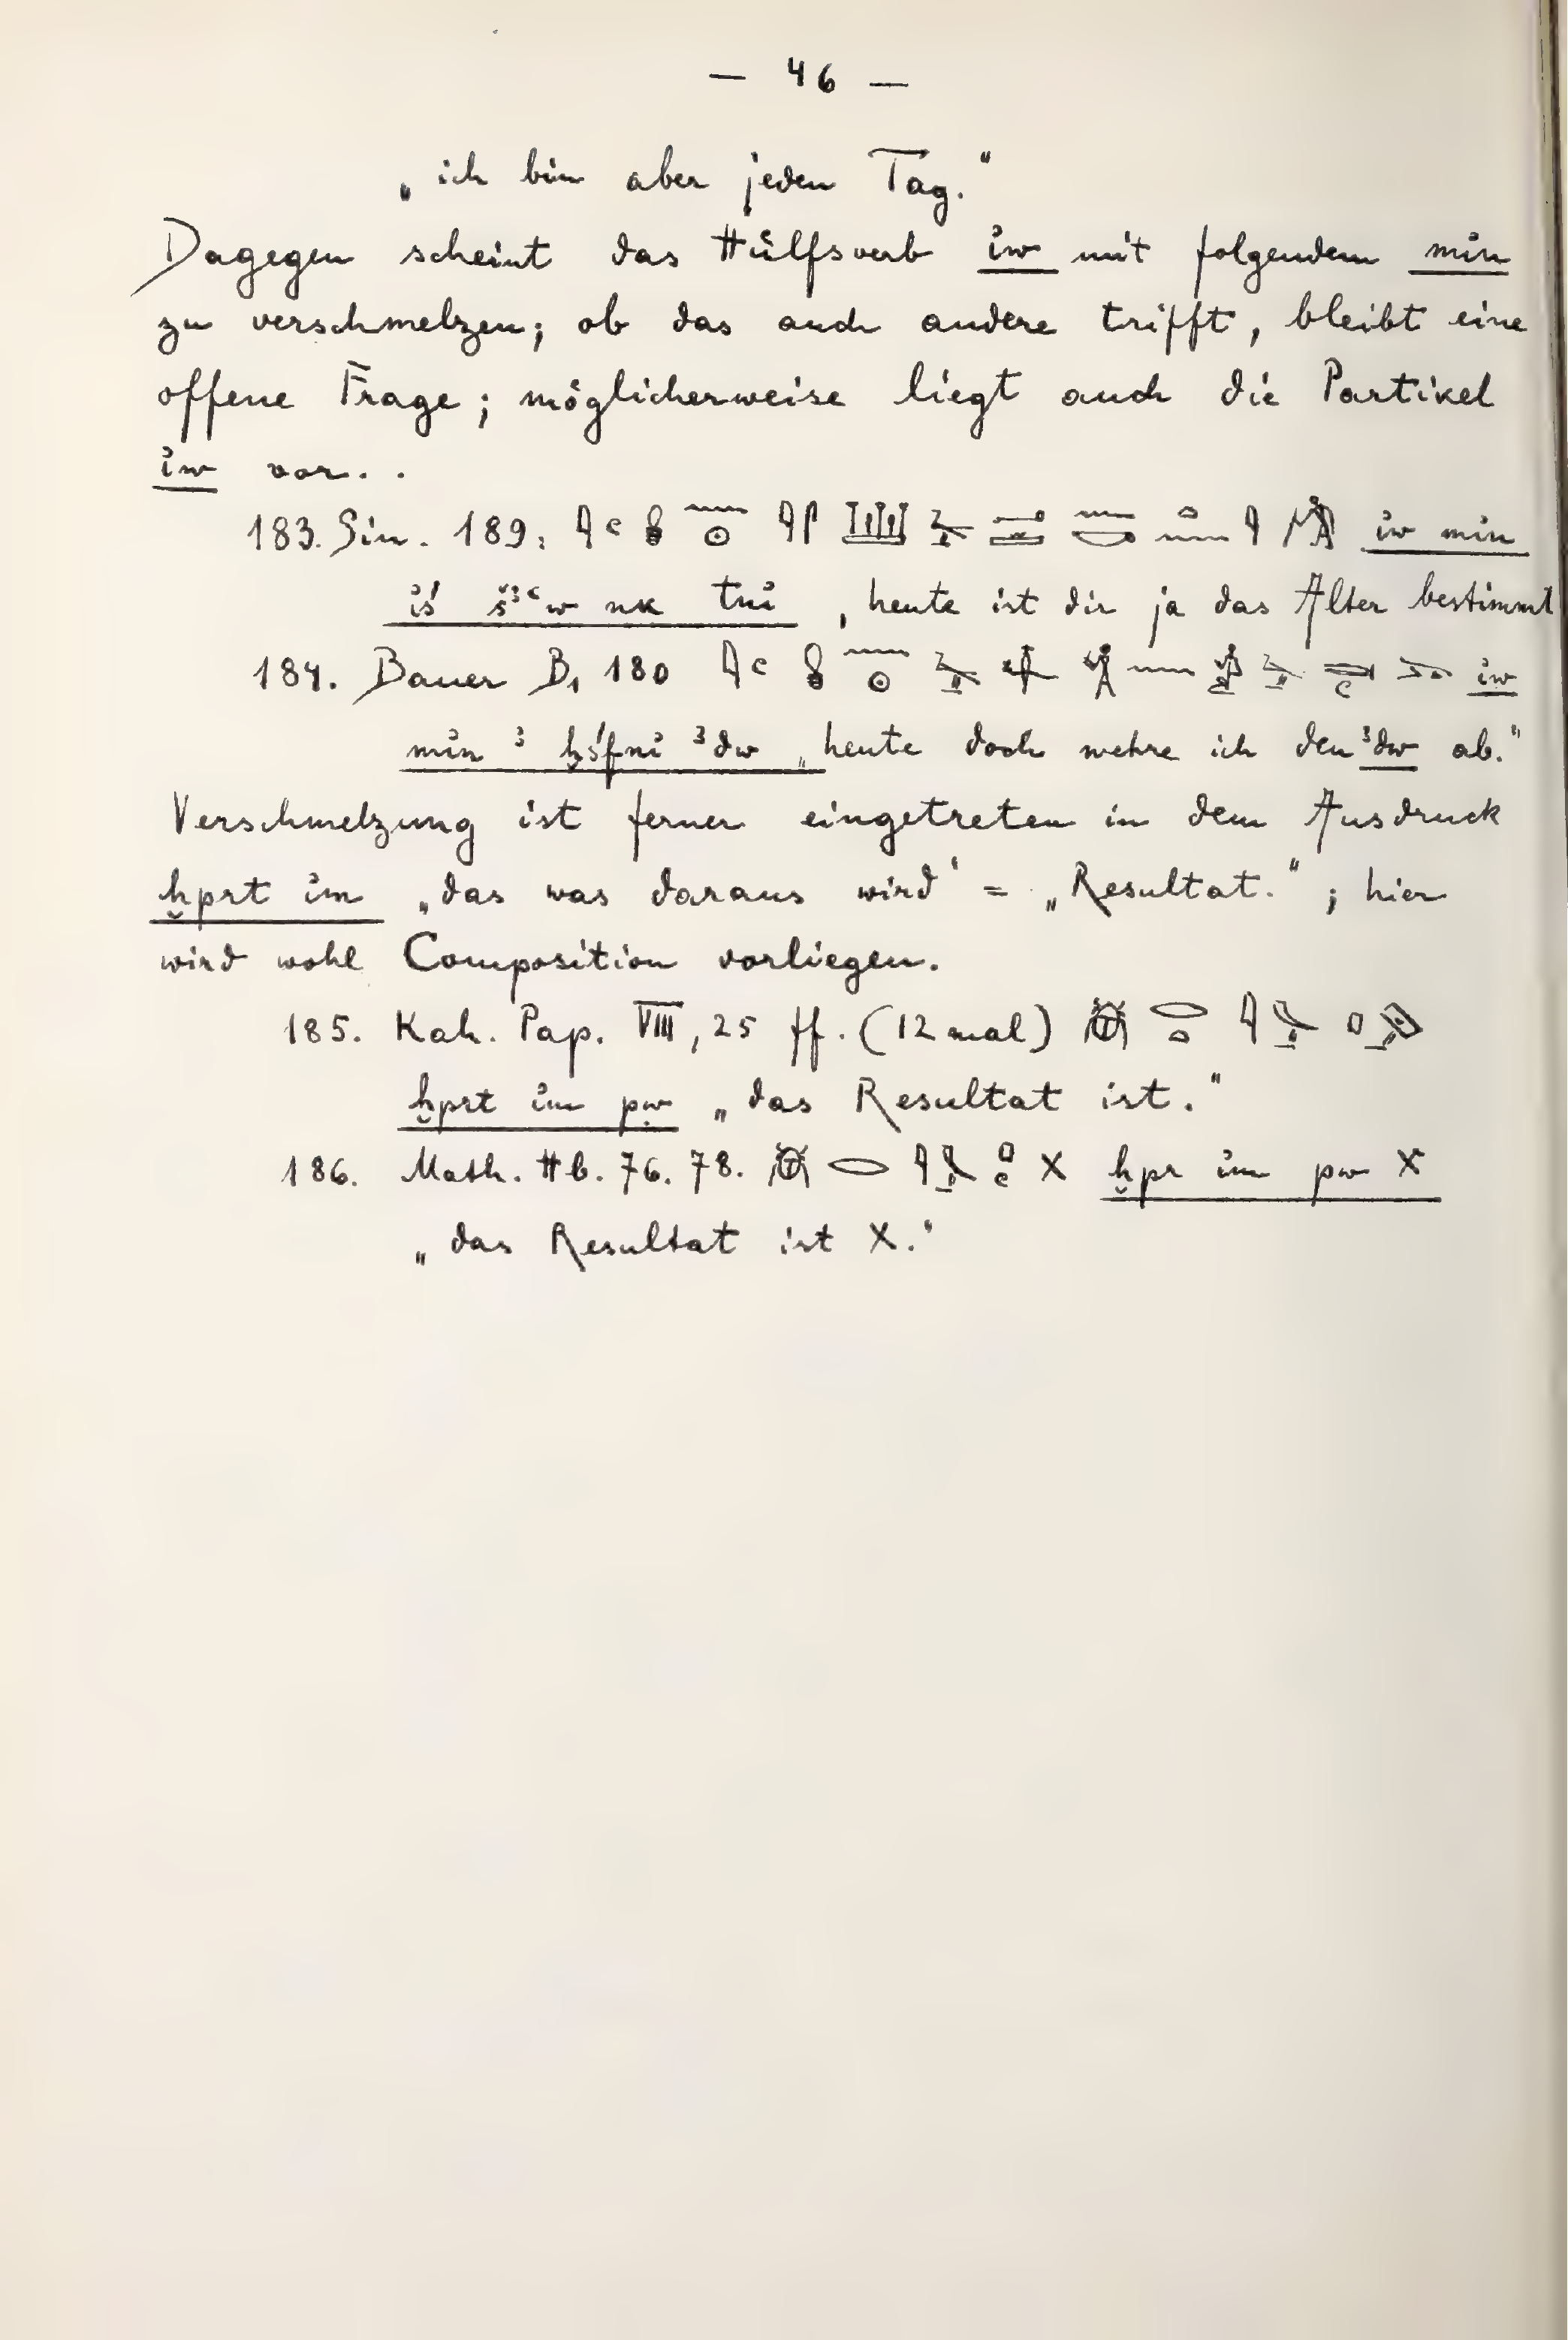 — 46 —
„ich bin aber jeden Tag.“
Dagegen scheint das Hülfsverb iw mit folgendem min
zu verschmelzen; ob das auch andere trifft, bleibt eine
offene Frage; möglicherweise liegt auch die Partikel
iw vor..
183. Sin. 189: iw min
iś šꜣꜥw nk tni „heute ist dir ja das Alter bestimmt
184. Bauer B₁ 180 iw
min ꜣ ḫśfni ꜣdw „heute doch wehre ich den ꜣdw ab.“
Verschmelzung ist ferner eingetreten in dem Ausdruck
ḫprt im „das was daraus wird‘ = „Resultat.“; hier
wird wohl Composition vorliegen.
185. Kah. Pap. VIII, 25 ff. (12 mal)
ḫprt im pw „das Resultat ist.“
186. Math. Hb. 76. 78. X ḫpr im pw X
„das Resultat ist X.“